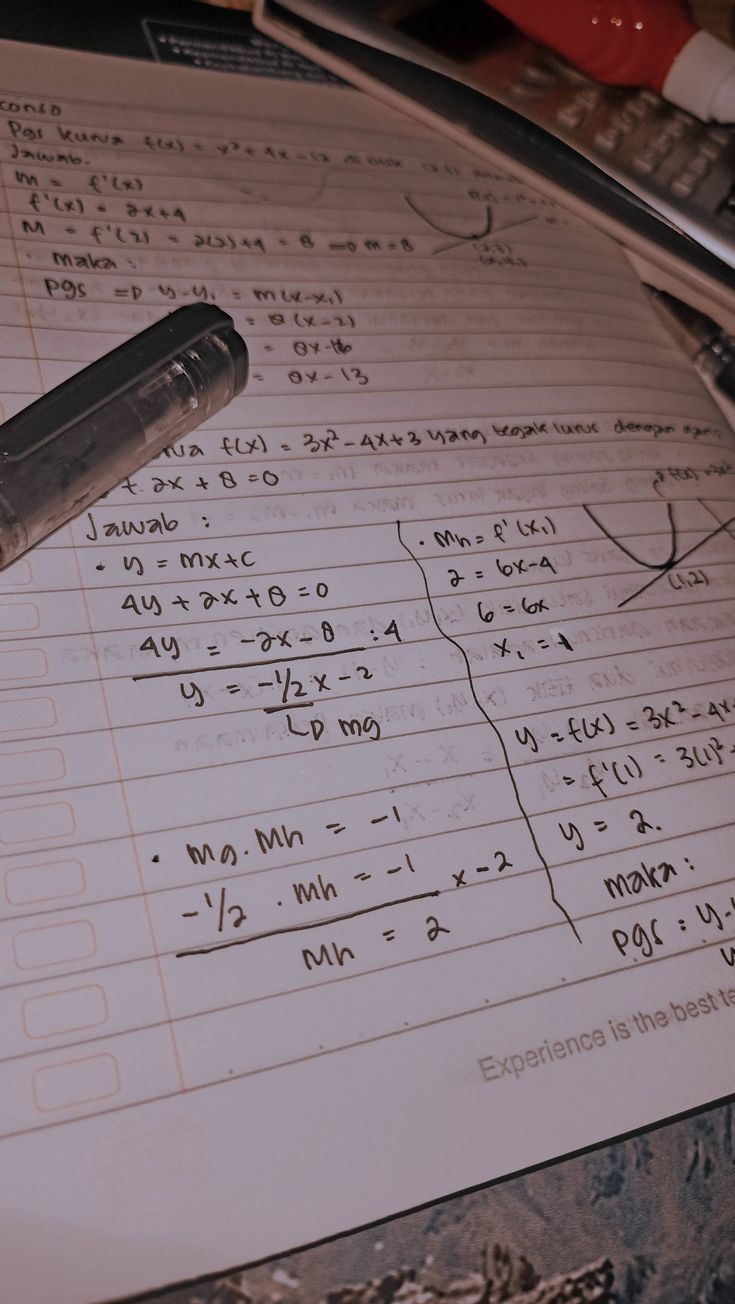 Pgs kurva f(x) = x² + 4x - 12 di
Jawab.
m = f'(x)
f'(x) = 2x+4
M = f'(2) = 2(2)+4 = 8 => m = 8
maka :
pgs => y-y₁ = m(x-x₁)
= 8(x-2)
= 8x-16
= 8x-13
f(x) = 3x²-4x+3 yang tegak lurus dengan garis
+ 2x + 8 = 0
Jawab :
• y = mx+c
4y + 2x + 8 = 0
4y = -2x - 8 : 4
y = -1/2 x - 2
mg
• mg. mh = -1
-1/2 . mh = -1 x-2
mh = 2
• mh = f'(x₁)
2 = 6x-4
6 = 6x
x₁ = 1
(1,2)
y = f(x) = 3x²-4x
= f'(1) = 3(1)²
y = 2.
maka :
pgs : y-
Experience is the best te